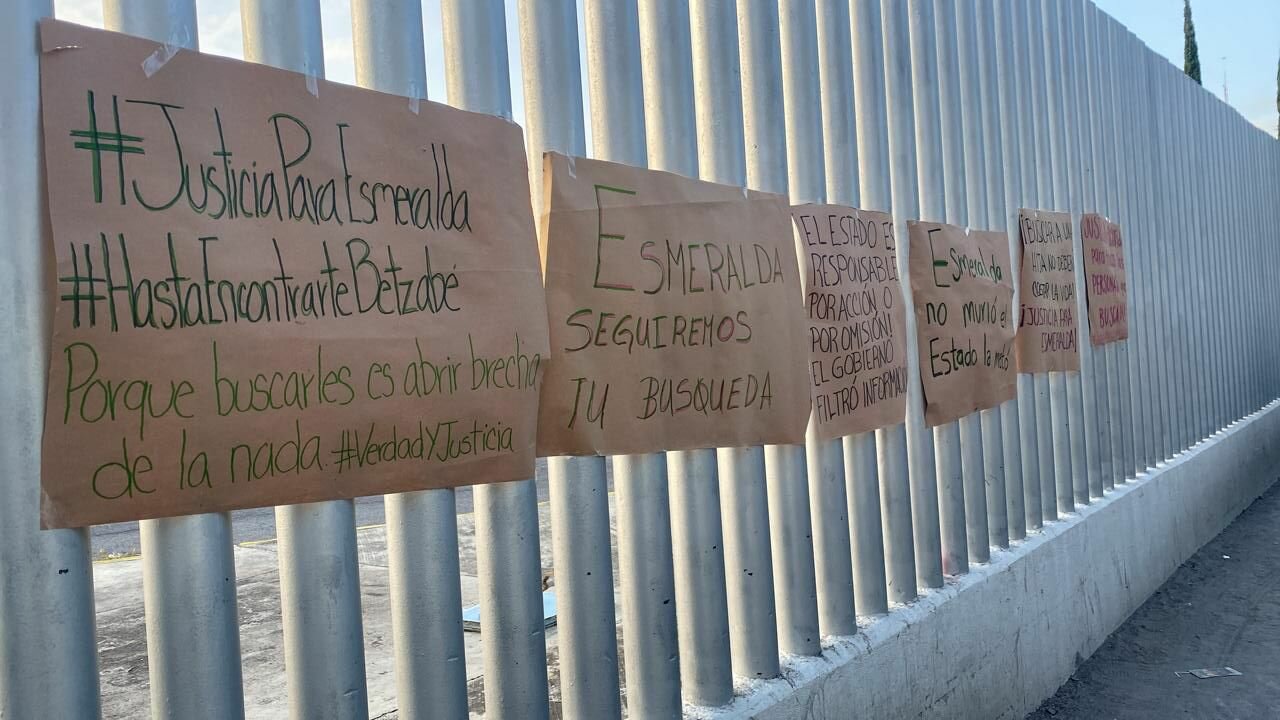 #JusticiaParaEsmeralda
#HastaEncontrarteBetzabé
Porque buscarles es abrir brecha
de la nada. #VerdadYJusticia
ESMERALDA
SEGUIREMOS
TU BUSQUEDA
EL ESTADO ES
RESPONSABLE
POR ACCIÓN O
POR OMISIÓN!
EL GOBIERNO
FILTRÓ INFORMACIÓN
Esmeralda
no murió el
Estado la mató
¡BUSCAR A UN
HIJA NO DEBERÍA
COSTAR LA VIDA!
¡JUSTICIA PARA
ESMERALDA!
para todas las
PERSONAS
BUSCAN!